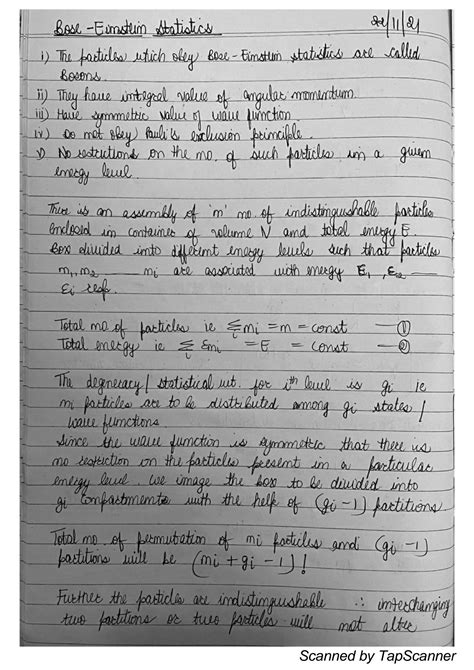 Bose-Einstein Statistics 22/11/21
i) The particles which obey Bose-Einstein statistics are called
Bosons.
ii) They have integral value of angular momentum.
iii) Have symmetric value of wave function
iv) Do not obey Pauli's exclusion principle.
v) No restrictions on the no. of such particles in a given
energy level.
There is an assembly of 'n' no. of indistinguishable particles
enclosed in container of volume V and total energy E.
Box divided into different energy levels such that particles
n1, n2 ---- ni are associated with energy E1, E2 --
Ei resp.
Total no. of particles ie Σi ni = n = const — ①
Total energy ie Σi Eni = E = const — ②
The degneracy / statistical wt. for ith level is gi ie
ni particles are to be distributed among gi states /
wave functions.
Since the wave function is symmetric that there is
no restriction on the particles present in a particular
energy level. We image the box to be divided into
gi compartments with the help of (gi - 1) partitions
Total no. of permutation of ni particles and (gi - 1)
partitions will be (ni + gi - 1)!
Further the particles are indistinguishable ∴ interchanging
two partitions or two particles will not alter
Scanned by TapScanner